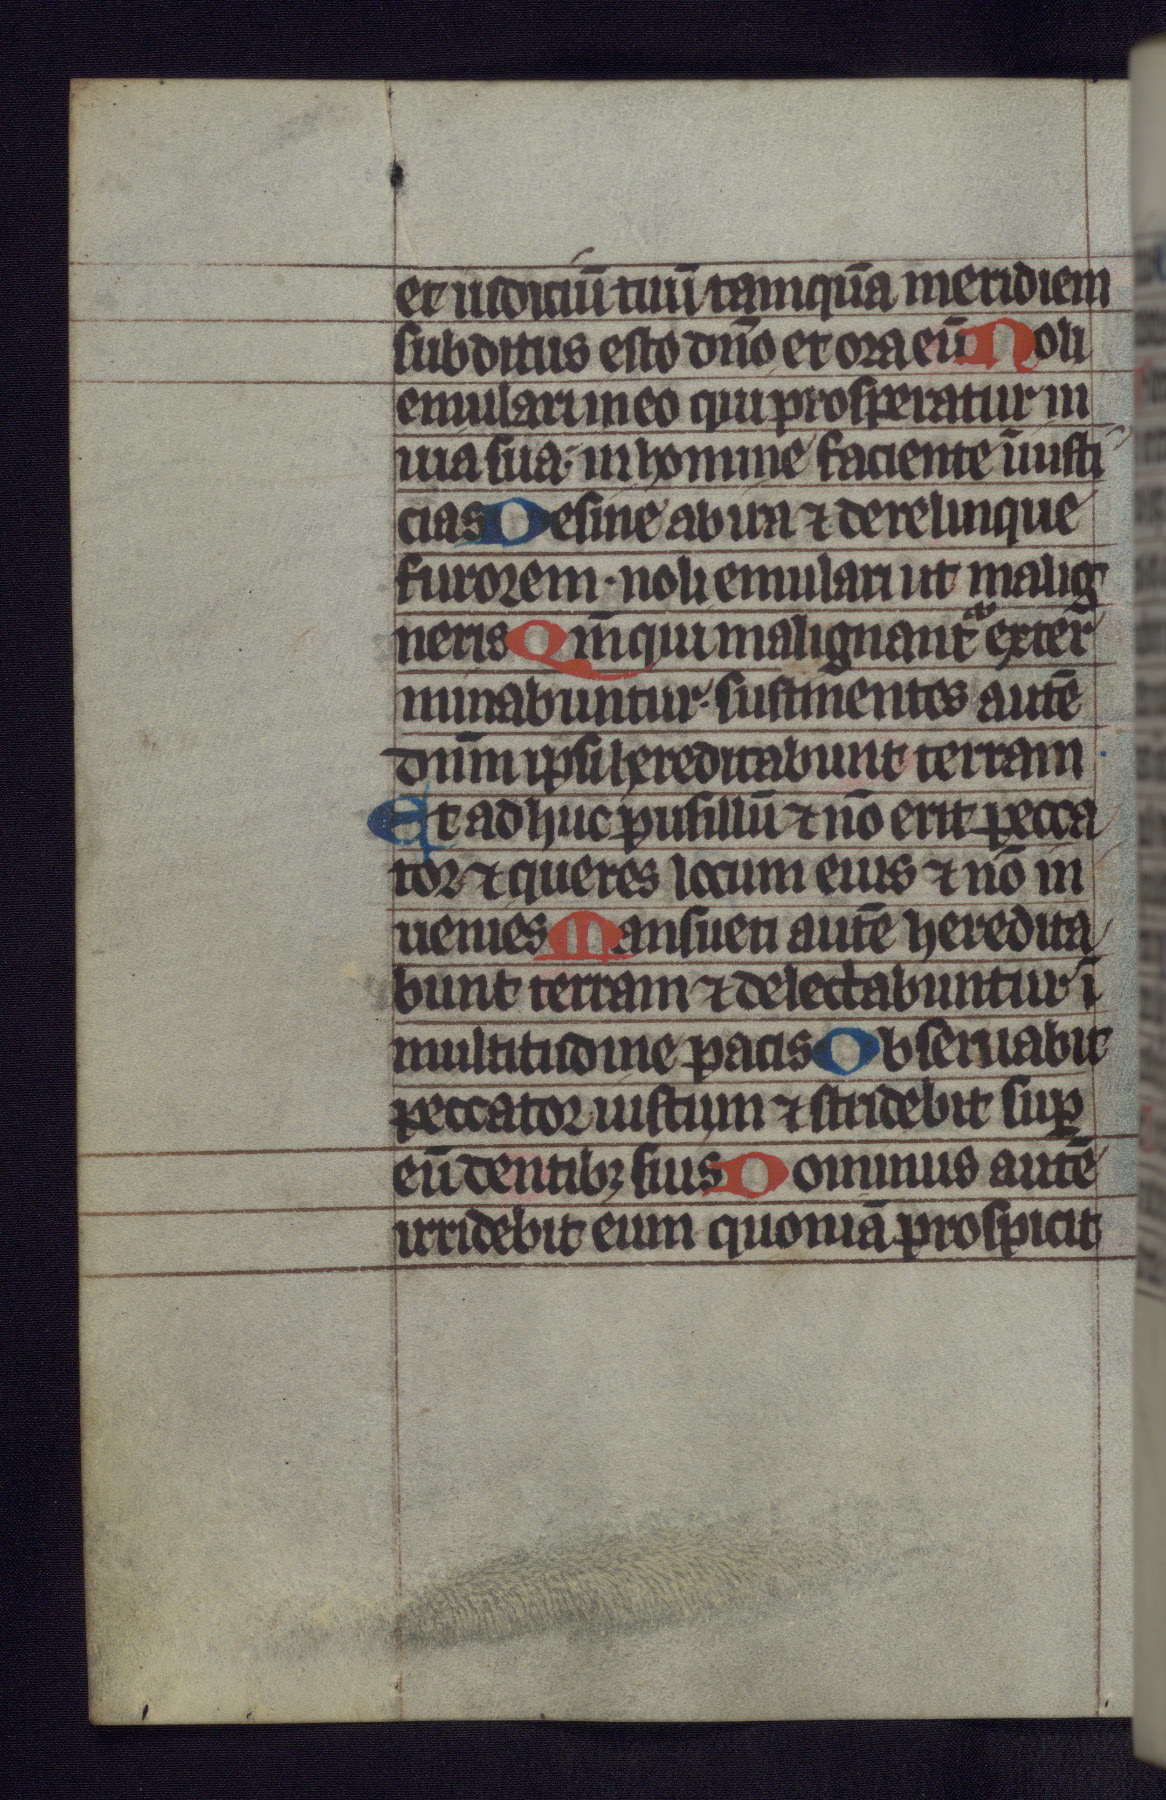 et iudiciū tuū tamquā meridiem
subditus esto dn̄o et ora eū Noli
emulari in eo qui prosperatur in
uia sua· in homine faciente īiusti
cias Desine ab ira ⁊ derelinque
furorem· noli emulari ut malig
neris Qm̄ qui malignant᷑ exter
minabuntur· sustinentes autē
dnm̄ ipsi hereditabunt terram
Et adhuc pusillū ⁊ nō erit pecca
tor ⁊ queres locum eius ⁊ nō in
uenies Mansueti autē heredita
bunt terram ⁊ delectabuntur ī
multitudine pacis Obseruabit
peccator iustum ⁊ stridebit suꝑ
eū dentibꝫ suis Dominus autē
irridebit eum quoniā prospicit